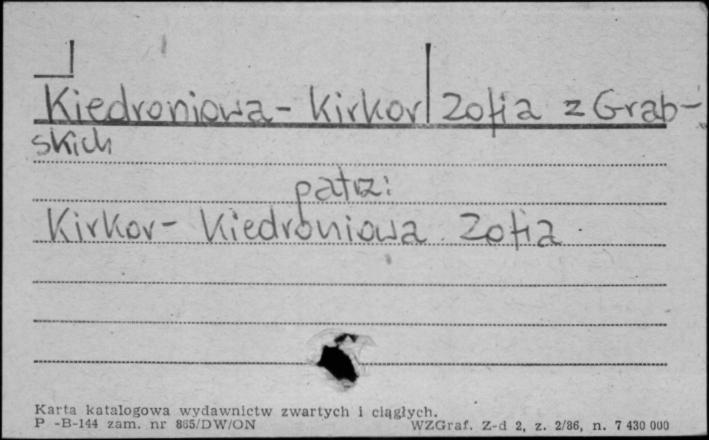 Kiedroniowa - Kirkor Zofia z Grab-
skich
patrz:
Kirkor - Kiedroniowa Zofia
Karta katalogowa wydawnictw zwartych i ciągłych.
P -B-144 zam. nr 865/DW/ON WZGraf. Z-d 2, z. 2/86, n. 7 430 000